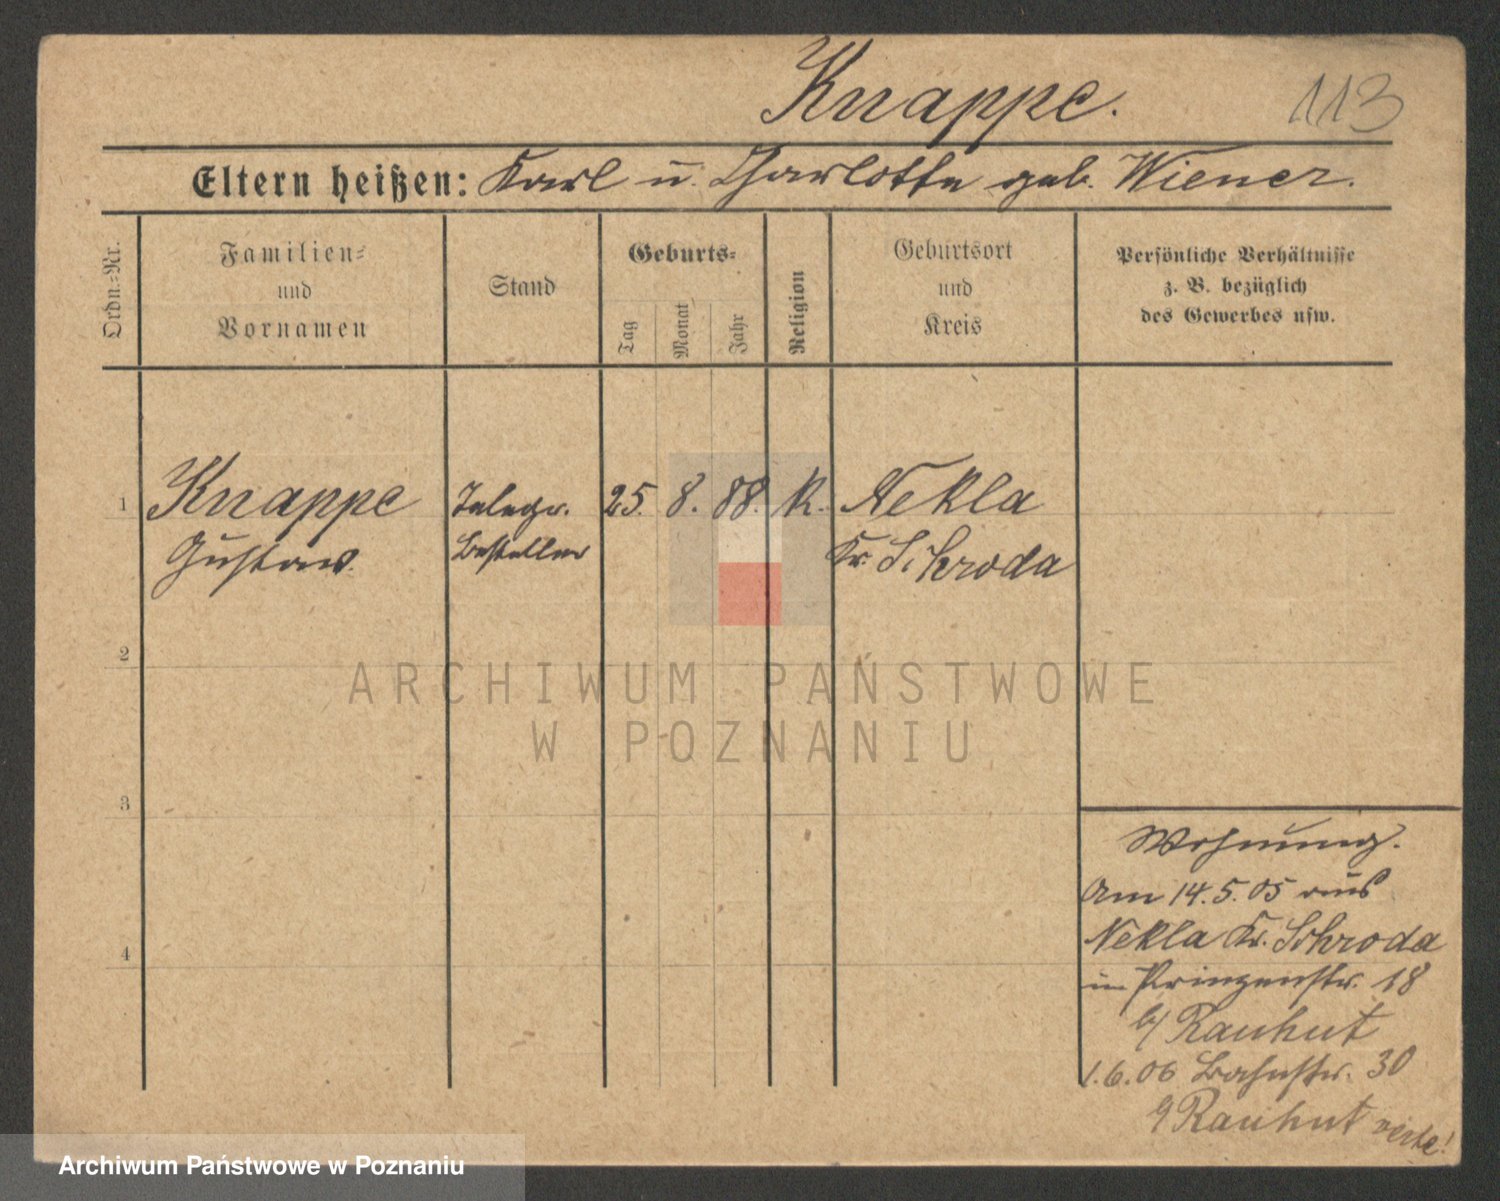 Knappe.
113
Eltern heißen: Karl u. Charlotte geb. Wiener.
Ordn.=Nr.
Familien=
und
Vornamen
Stand
Geburts=
Tag
Monat
Jahr
Religion
Geburtsort
und
Kreis
Persönliche Verhältnisse
z. B. bezüglich
des Gewerbes usw.
1 Knappe Telegr. 25. 8. 88. K. Nekla
Gustav. Besteller Kr. Schroda
2
ARCHIWUM PAŃSTWOWE
W POZNANIU
3
Wohnung.
Am 14.5.05 aus
Nekla Kr. Schroda
4
in Prinzenstr. 18
b/ Rauhut
1.6.06 Bahnstr. 30
b/ Rauhut verte!
Archiwum Państwowe w Poznaniu